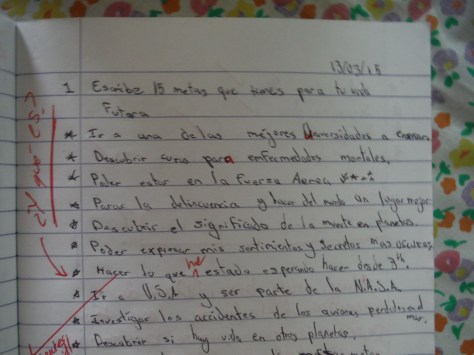 13/03/15
1 Escribe 15 metas que tienes para tu vida
Futura
* Ir a una de las mejores Universidades a
* Descubrir curas para enfermedades mentales.
* Poder estar en la Fuerza Aerea
* Parar la delincuencia y hacer del mundo un lugar mejor
* Descubrir el significado de la mente en planetas.
* Poder expresar mis sentimientos y secretos mas oscuros.
* Hacer lo que he estado esperando hacer desde 3th.
* Ir a U.S.A y ser parte de la N.A.S.A
* Investigar los accidentes de los aviones perdidos mar.
* Descubrir si hay vida en otros planetas.